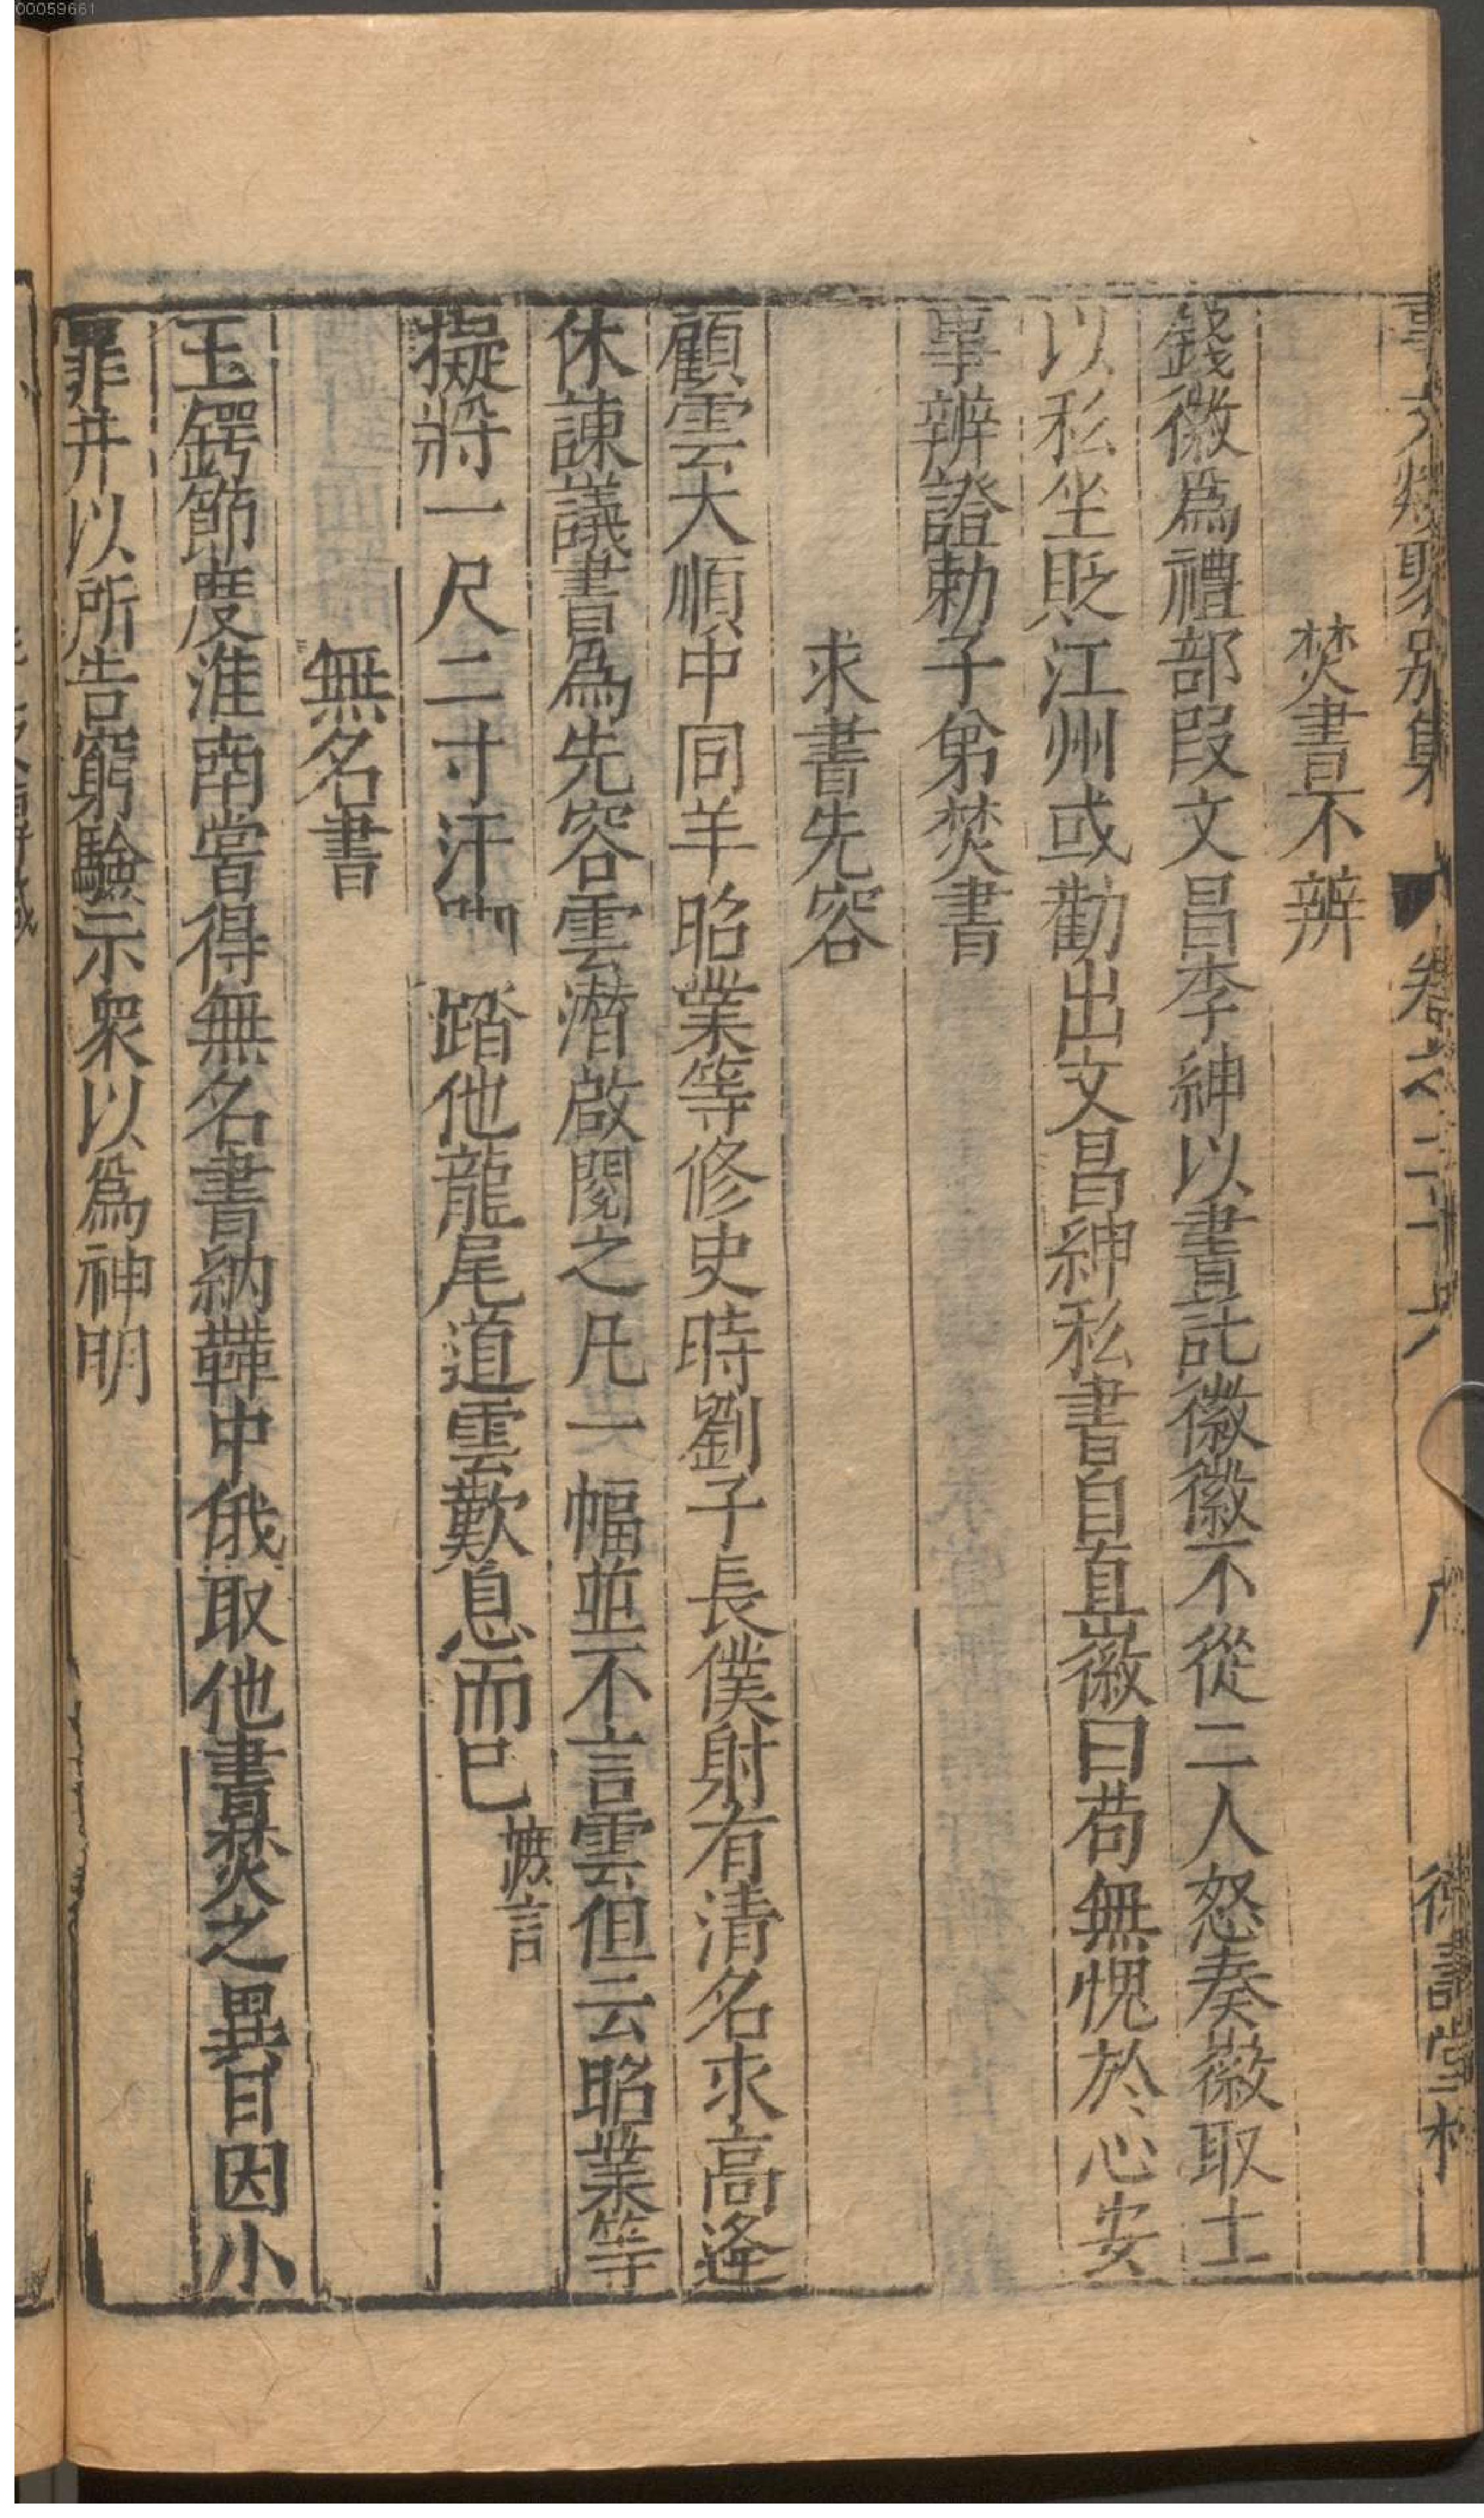 00059661
焚書不辨
錢徽爲禮部段文昌李紳以書託徽徽不從二人怒奏徽取士
以私坐貶江州或勸出文昌紳私書自直徽曰苟無愧於心安
事辨證勅子弟焚書
求書先容
顧雲大順中同羊昭業等修史時劉子長僕射有清名求高逢
休諫議書爲先容雲潛啟閱之凡一幅並不言雲但云昭業等
擬將一尺二寸汗 踏他龍尾道雲歎息而已 摭言
無名書
王鍔節度淮南嘗得無名書納鞾中俄取他書焚之異日因小
罪并以所告窮驗示衆以爲神明